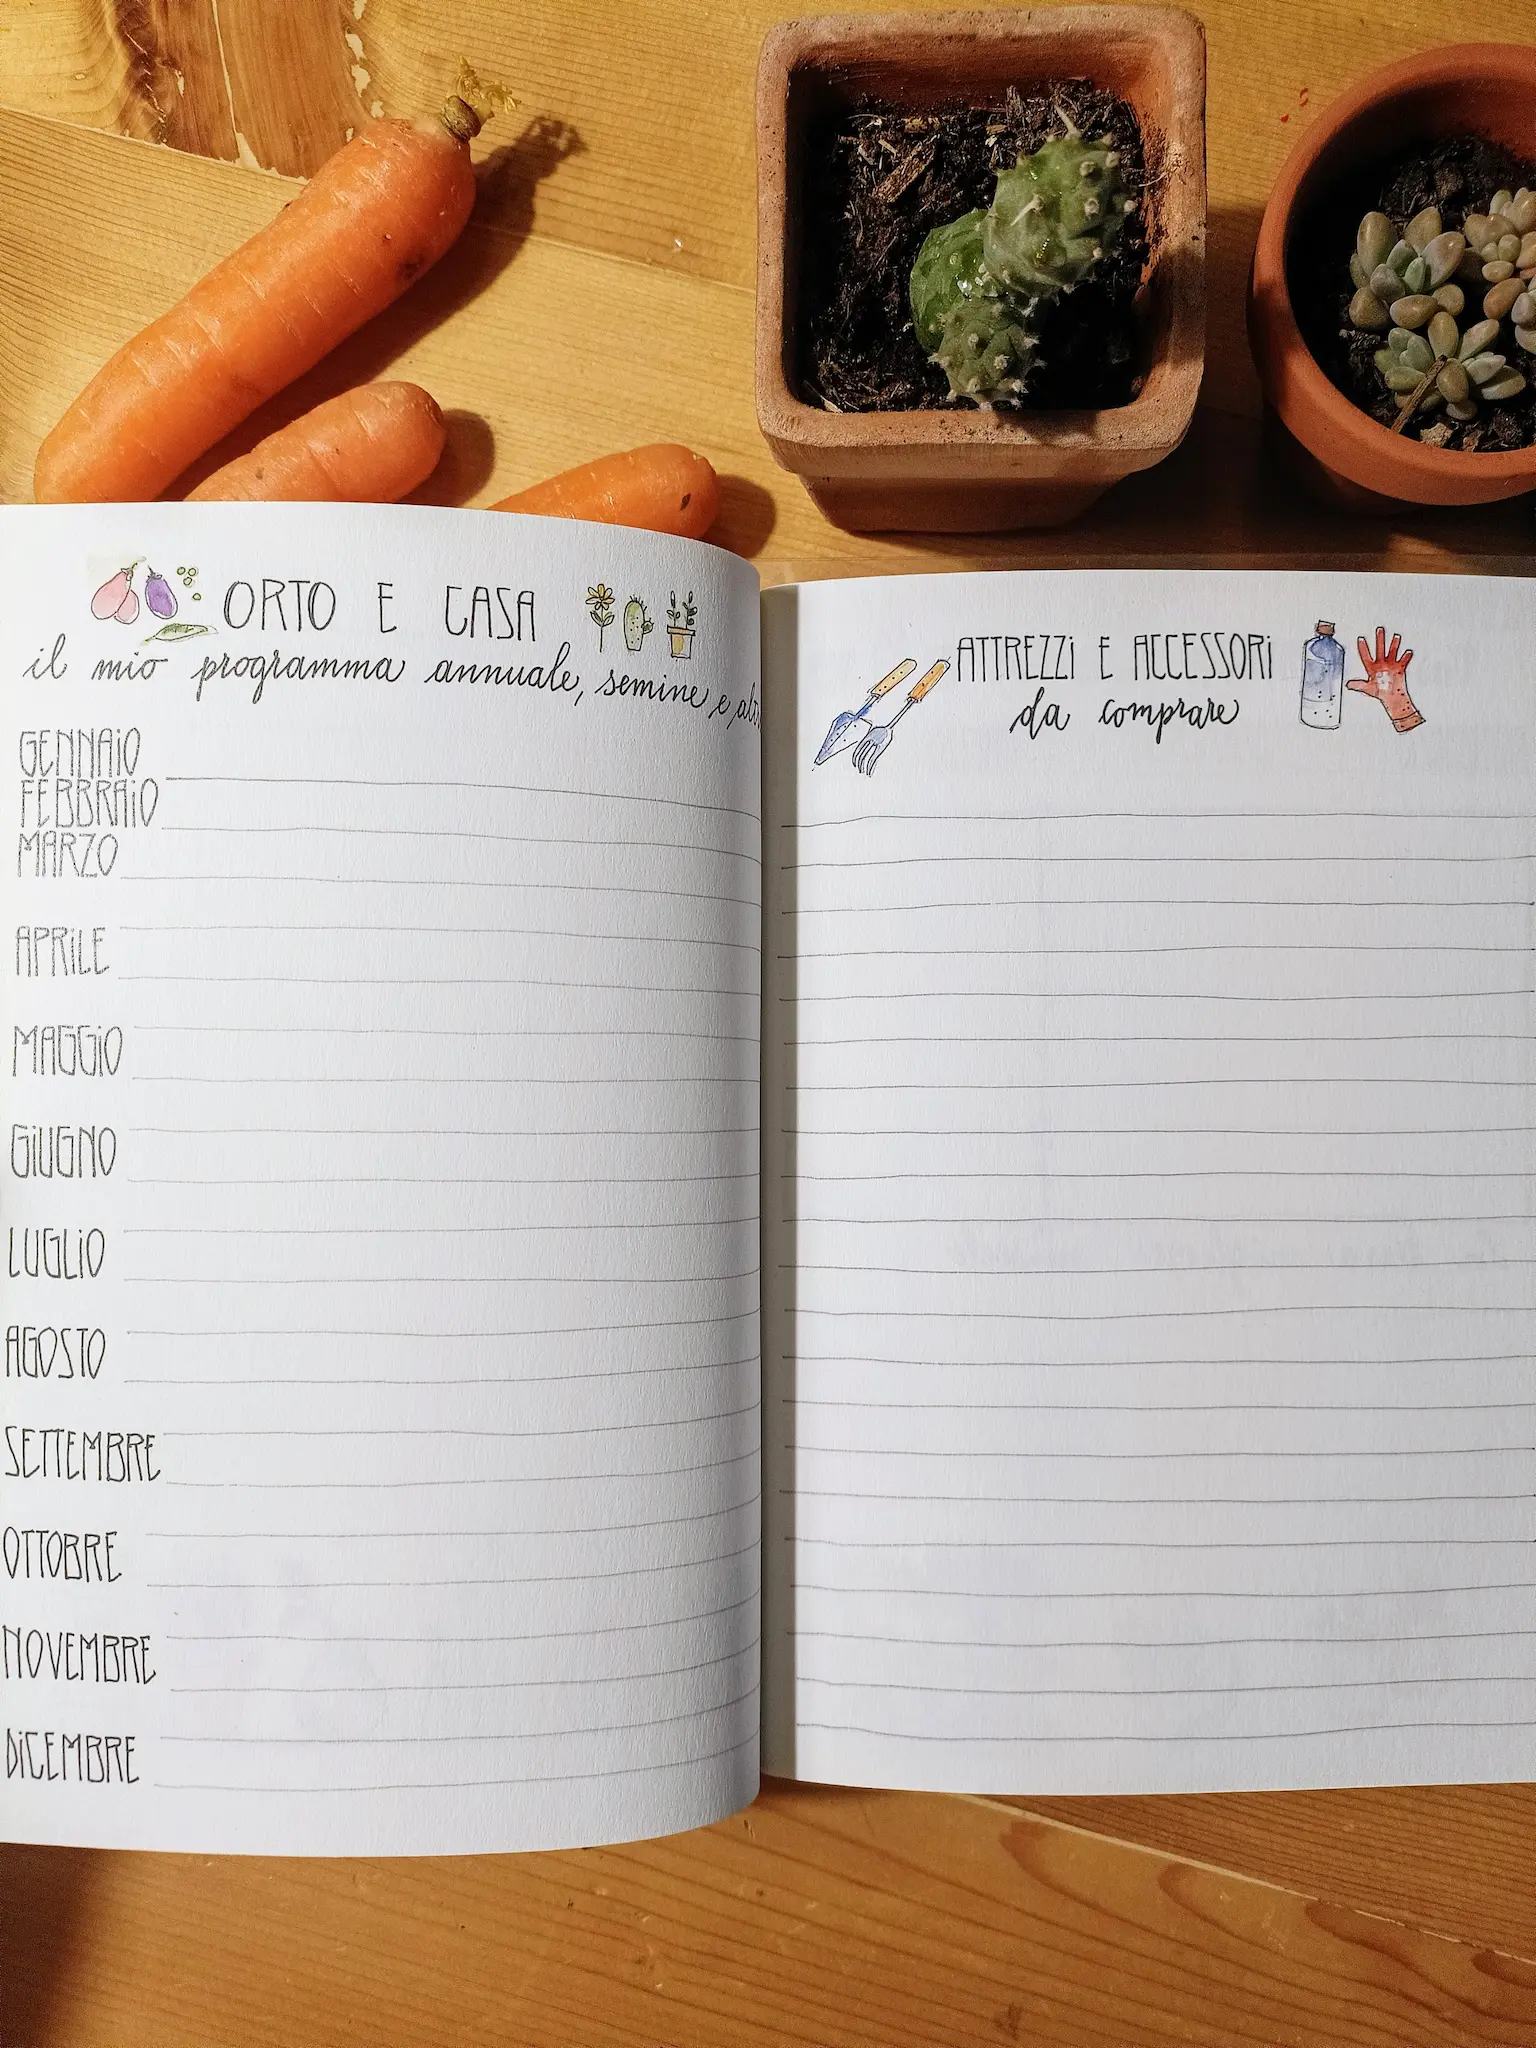 ORTO E CASA
il mio programma annuale, semine e
GENNAiO
FEBBRAiO
MARZO
APRiLE
MAGGiO
GiUGNO
LUGLiO
AGOSTO
SETTEMBRE
OTTOBRE
NOVEMBRE
DiCEMBRE
ATTREZZi E ACCESSORi
da comprare